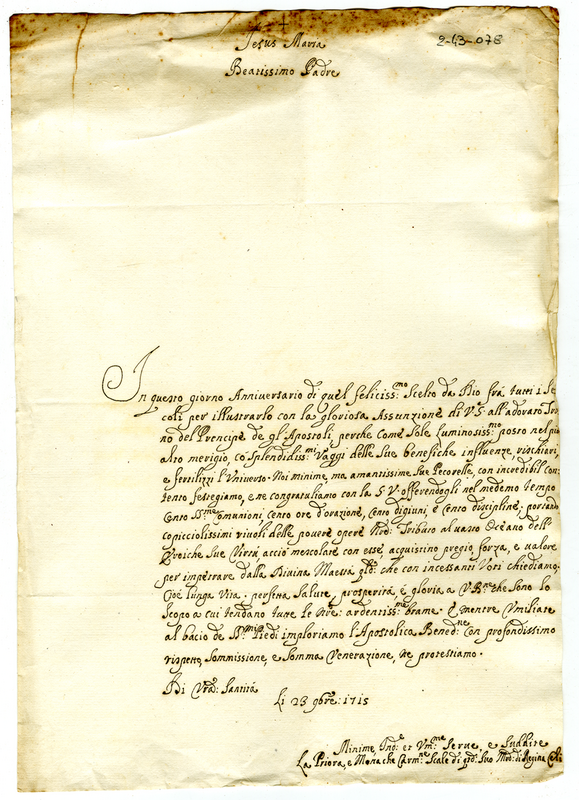 2-43-078
Jesus Maria
Beatissimo Padre
In questo giorno Anniversario di quel feliciss:mo Scelto da Dio frà tutti i Se
coli per illustrarlo con la gloriosa Assunzione di V.S. all'adorato Tro
no del Prencipe de gl'Apostoli, perche come Sole Luminosiss:mo posto nel più
alto merigio, co' Splendidiss:mi Raggi delle Sue benefiche influenze, rischiari,
e fertilizzi l'Vniverso. Noi minime, ma amantissime Sue Pecorelle, con incredibil con
tento festegiamo, e ne congratuliamo con la S.V. offerendogli nel medemo tempo
Cento SS:me Comunioni, cento ore d'orazione, Cento digiuni, e Cento discipline; portando
copiccioliissimi rivoli delle povere opere Nre: Tributo al vasto Oceano dell'
Eroiche Sue Virtù, acciò mescolate con esse, acquistino pregio, forza, e valore
per impetrare dalla Divina Maestà che con incessanti Voti chiediamo.
Cioè lunga Vita, perfetta Salute, prosperità, e gloria a V. che Sono lo
Scopo a cui tendano tutte le Nre: ardentiss:me brame. E mentre Vmiliate
al bacio de SS:mi Piedi imploriamo l'Apostolica Bened:ne Con profondissimo
rispetto, Sommissione, e Somma Venerazione, ne protestiamo.
Di Vra: Santità
Li 23 9bre: 1715
Minime, Ind:e et Vm:me Serve, e Suddite
La Priora, e Monache Carm:ne Scalze di Suo Mro: di Regina Celi